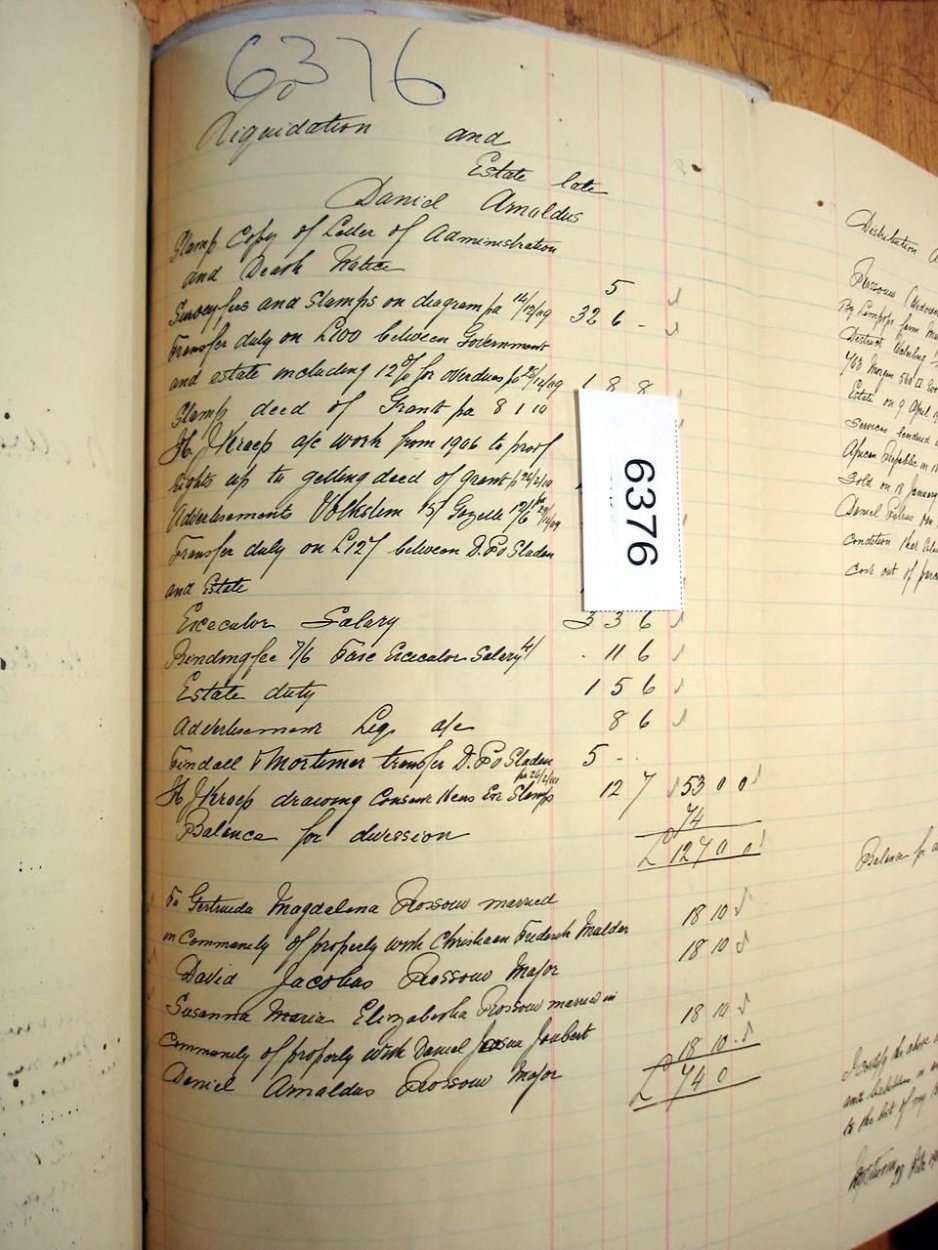 6376
Liquidation and
Estate late
Daniel Arnoldus
Stamp Copy of Letter of Administration
and Death Notice 5
Survey fees and Stamps on diagram pa 14/12/09 32 6 -
Transfer duty on £100 between Government
and estate including 12% for overdue pa 1 8 8
Stamp deed of Grant pa 8 1 10
H. J. Kroep a/c work from 1906 to proof
rights up to getting deed of grant
Advertisements Volkstem 15/ Gazette 12/6
Transfer duty on £127 between D. P. Sladen
and Estate
6376
Executor Salary 3 3 6
Bondingfee 7/6 Executor Salary 4/ . 11 6
Estate duty 1 5 6
Advertisement Liq. a/c 8 6
Tindall & Mortimer transfer D. P. Sladen 5 - .
H. J. Kroep drawing Consent Stamps 12 7 53 0 0
Balance for division 74
£ 127 0 0
To Gertruida Magdalena Rossouw married
in Community of property with Christiaan Frederik Mulder 18 10
David Jacobus Rossouw Major 18 10
Susanna Maria Elizabetha Rossouw married in
Community of property with Daniel Joubert 18 10
Daniel Arnoldus Rossouw Major 18 10
£ 74 0
Distribution
Rossouw
farm
District
Morgen
Estate on 9 April
Services rendered
African Republic in
Sold on 18 January
Daniel
Condition that
Cost out of
Balance for
I certify the above
and liabilities in
to the best of my